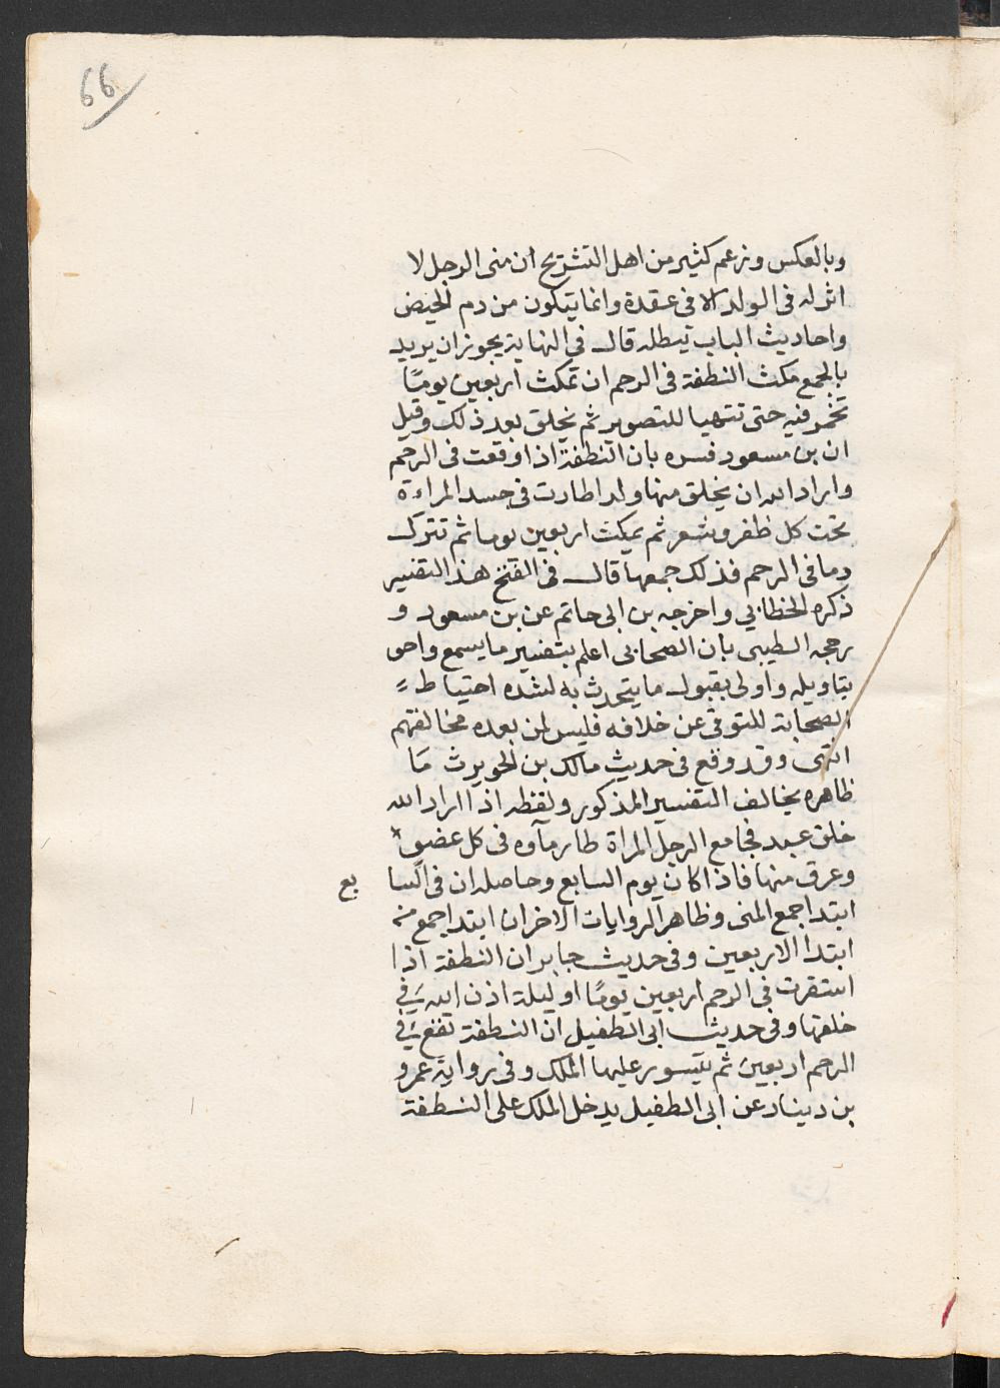 66
وبالعكس وزعم كثير من اهل التشريح ان منى الرجل لا
اثر له فى الولد الا فى عقده وانما يتكون من دم الحيض
واحاديث الباب تبطله قال في النهاية يجوز ان يريد
بالجمع مكث النطفة فى الرحم ان تمكث اربعين يومًا
تخمر فيه حتى تتهيا للتصوير ثم يخلق بعد ذلك وقيل
ان بن مسعود فسره بان النطفة اذا وقعت فى الرحم
واراد الله ان يخلق منها ولدا طارت فى جسد المراءة
تحت كل ظفر وشعر ثم يمكث اربعين يوما ثم تترك
دما فى الرحم فذلك جمعها قال فى الفتح هذا التفسير
ذكره الخطابي واخرجه بن ابى حاتم عن بن مسعود و
رحجه الطيبى بان الصحابى اعلم بتفسير ما يسمع واحو
بتاويله واولى بقبول ما يتحدث به لشده احتياط
الصحابة للتوقى عن خلافه فليس لمن بعده مخالفتهم
انتهى وقد وقع فى حديث مالك بن الحويرث مَا
ظاهره يخالف التفسير المذكور ولفظه اذا اراد الله
خلق عبد فجامع الرجل المراة طار مآوه فى كل عضو
وعرق منها فاذا كان يوم السابع وحاصله ان فى السا بع
ابتدا جمع المنى وظاهر الروايات الاخران ابتدا جمع من
ابتدا الاربعين وفى حديث جابر ان النطفة اذا
استقرت فى الرحم اربعين يومًا او ليلة اذن الله فى
خلقها وفى حديث ابى الطفيل ان النطفة تقع فى
الرحم اربعين ثم يتسور عليها الملك وفى رواية عمرو
بن دينار عن ابى الطفيل يدخل الملك على النطفة